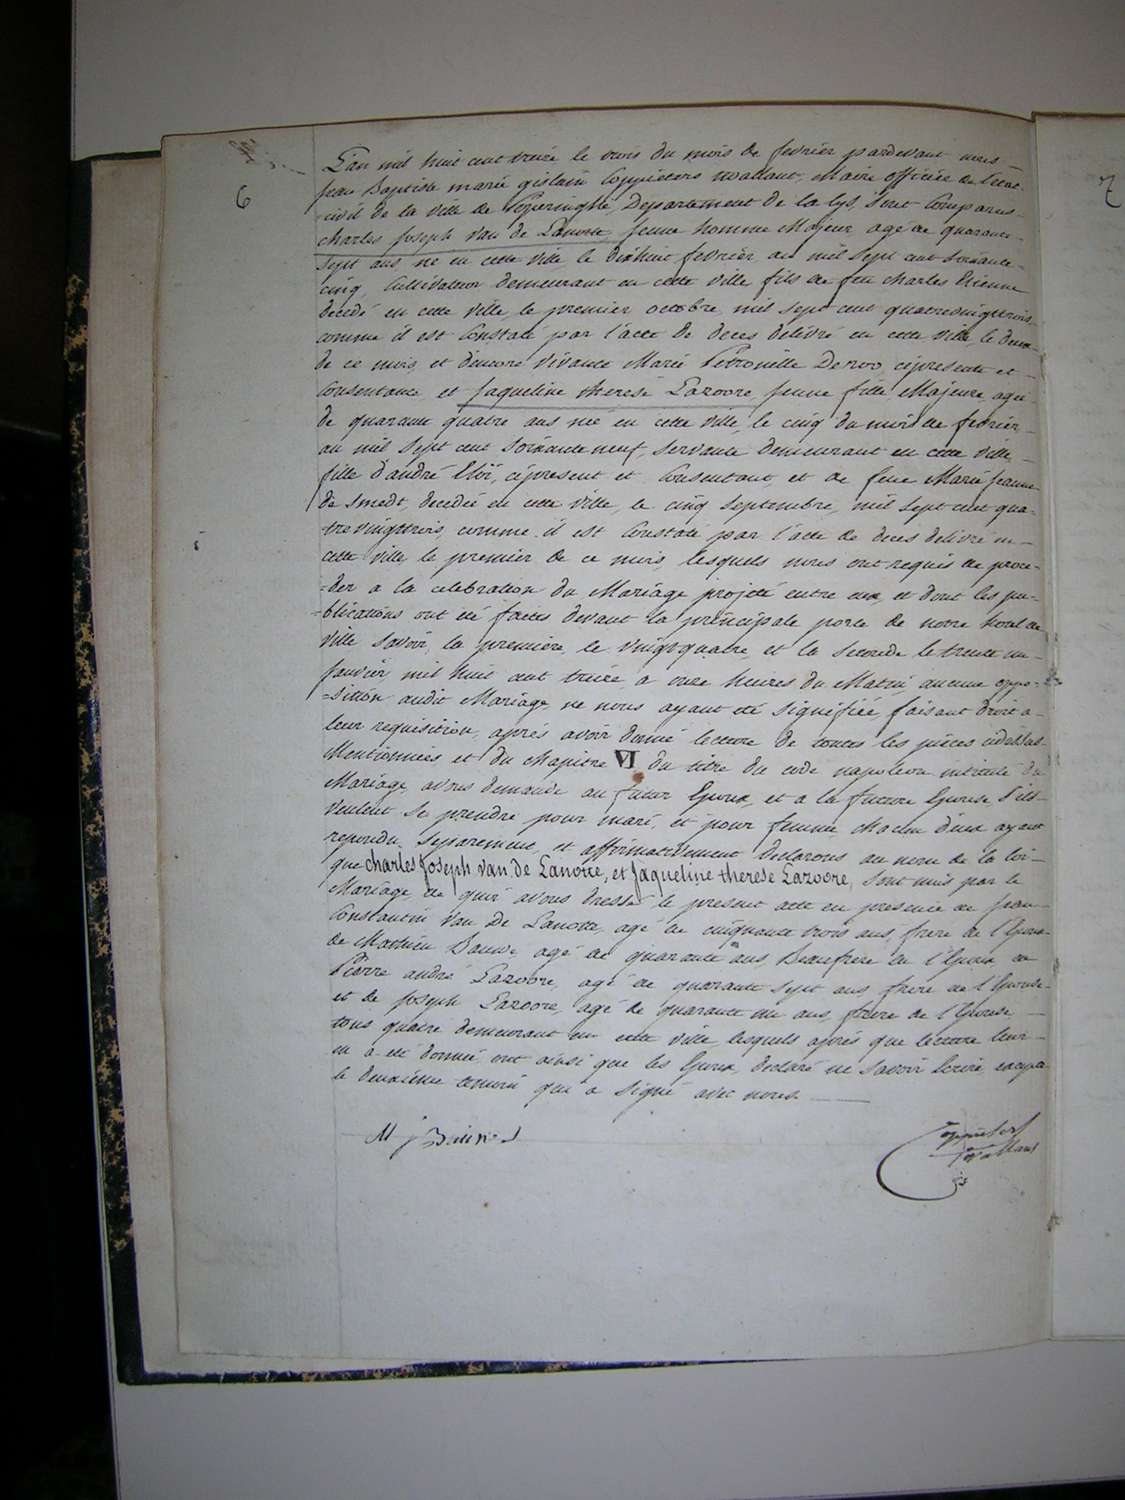 6
7
L'an mil huit cent treize le trois du mois de fevrier pardevant nous
jean Baptiste marie gislain Coppieters wallant, Maire officier de l'etat
civil de la ville de Poperinghe, Departement de la lys, sont Comparus
charles joseph Van de Lanotte, jeune homme Majeur, agé de quarante
sept ans né en cette ville le dixhuit fevrier an mil sept cent soixante
cinq, Cultivateur demeurant en cette ville fils de feu charles Etienne
decedé en cette ville le premier octobre mil sept cent quatrevingttrois
comme il est Constaté par l'acte de deces delivré en cette ville le deux
de ce mois, et d'encore vivante Marie Petronille Deroo, cipresente et
Consentante et Jaqueline therese Lazoore, jeune fille Majeure, agée
de quarante quatre ans née en cette ville, le cinq du mois de fevrier
an mil sept cent soixante neuf, servante demeurant en cette ville
fille d'andré Eloi, cipresent et Consentant et de feue Marie jeanne
de Smedt, decedée en cette ville, le cinq septembre, mil sept cent qua-
-trevingttrois, comme il est Constaté par l'acte de deces delivré en
cette ville le premier de ce mois, lesquels nous ont requis de proce-
-der a la celebration du Mariage projeté entre eux, et dont les pu-
-blications ont été faites devant la principale porte de notre hotel de
ville savoir, la premiere, le vingtquatre, et la seconde le trente un
janvier, mil huit cent treize, a onze heures du Matin, aucune oppo-
-sition audit Mariage ne nous ayant été signifiée, faisant droit a
leur requisition, après avoir donné lecture de toutes les pièces cidessus
Mentionnées et du chapitre VI du titre du code napoleon intitulé du
Mariage, avons demandé au futur Epoux, et a la future Epouse s'ils
veulent se prendre pour mari, et pour femme, chacun d'eux ayant
repondu separement, et affirmativement declarons au nom de la loi
que charles Joseph van de Lanotte, et Jaqueline therese Lazoore, sont unis par le
Mariage, de quoi avons dressé le present acte en presence de jean
Constantin Van De Lanotte, agé de cinquante trois ans, frere de l'Epoux
de Mathieu agé de quarante ans, Beaufrere de l'Epoux de
Pierre andré Lazoore, agé de quarante sept ans, frere de l'Epouse
et de Joseph Lazoore, agé de quarante un ans, frere de l'Epouse,
tous quatre demeurant en cette ville, lesquels après que lecture leur
en a été donnée, ont ainsi que les Epoux, declaré ne savoir Ecrire, excepté
le deuxième temoin qui a signé avec nous.
M j
Coppieters
wallant